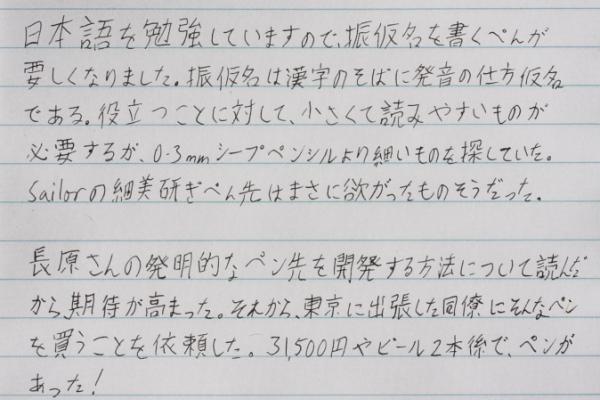 日本語を勉強していますので、振仮名を書くぺんが
要しくなりました。振仮名は漢字のそばに発音の仕方仮名
である。役立つことに対して、小さくて読みやすいものが
必要するが、0.3mmシープペンシルより細いものを探していた。
Sailorの細美研ぎぺん先はまさに欲がったものそうだった。
長原さんの発明的なペン先を開発する方法について読んだ
から、期待が高まった。それから、東京に出張した同僚にそんなペン
を買うことを依頼した。31,500円やビール2本後で、ペンが
あった！